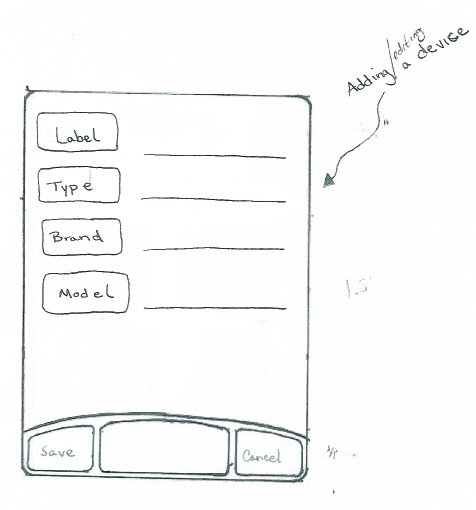 Adding/editing
a device
Label
Type
Brand
Model
1.5"
Save
Cancel